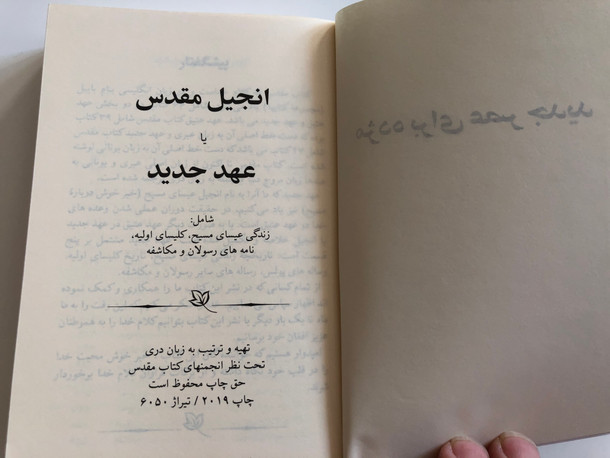 انجیل مقدس
یا
عهد جدید
شامل:
زندگی عیسای مسیح، کلیسای اولیه،
نامه های رسولان و مکاشفه
تهیه و ترتیب به زبان دری
تحت نظر انجمنهای کتاب مقدس
حق چاپ محفوظ است
چاپ ۲۰۱۹ / تیراژ ۶۰۵۰
مژده برای عصر جدید